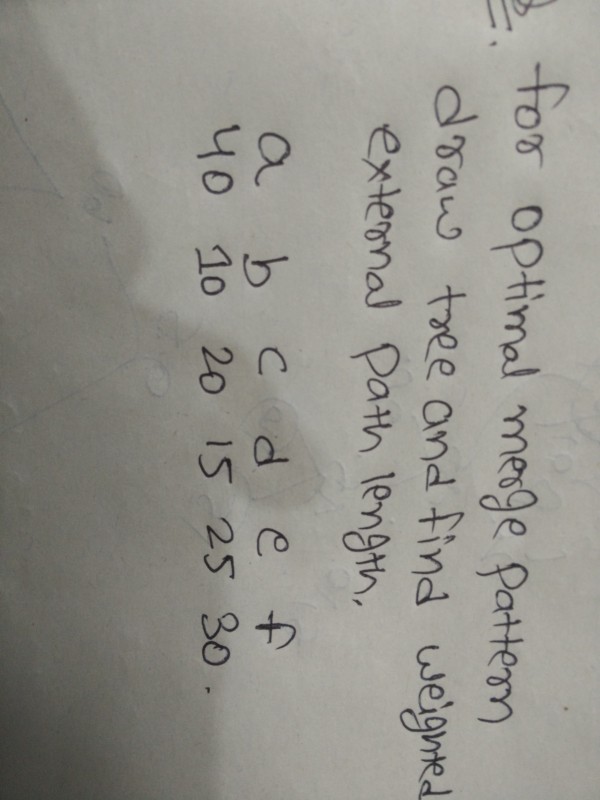 for optimal merge pattern
draw tree and find weighted
external path length.
a b c d e f
40 10 20 15 25 30.